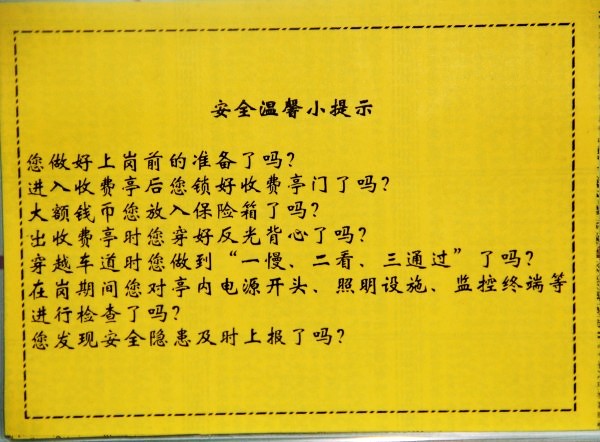 安全温馨小提示
您做好上岗前的准备了吗？
进入收费亭后您锁好收费亭门了吗？
大额钱币您放入保险箱了吗？
出收费亭时您穿好反光背心了吗？
穿越车道时您做到“一慢、二看、三通过”了吗？
在岗期间您对亭内电源开头、照明设施、监控终端等
进行检查了吗？
您发现安全隐患及时上报了吗？